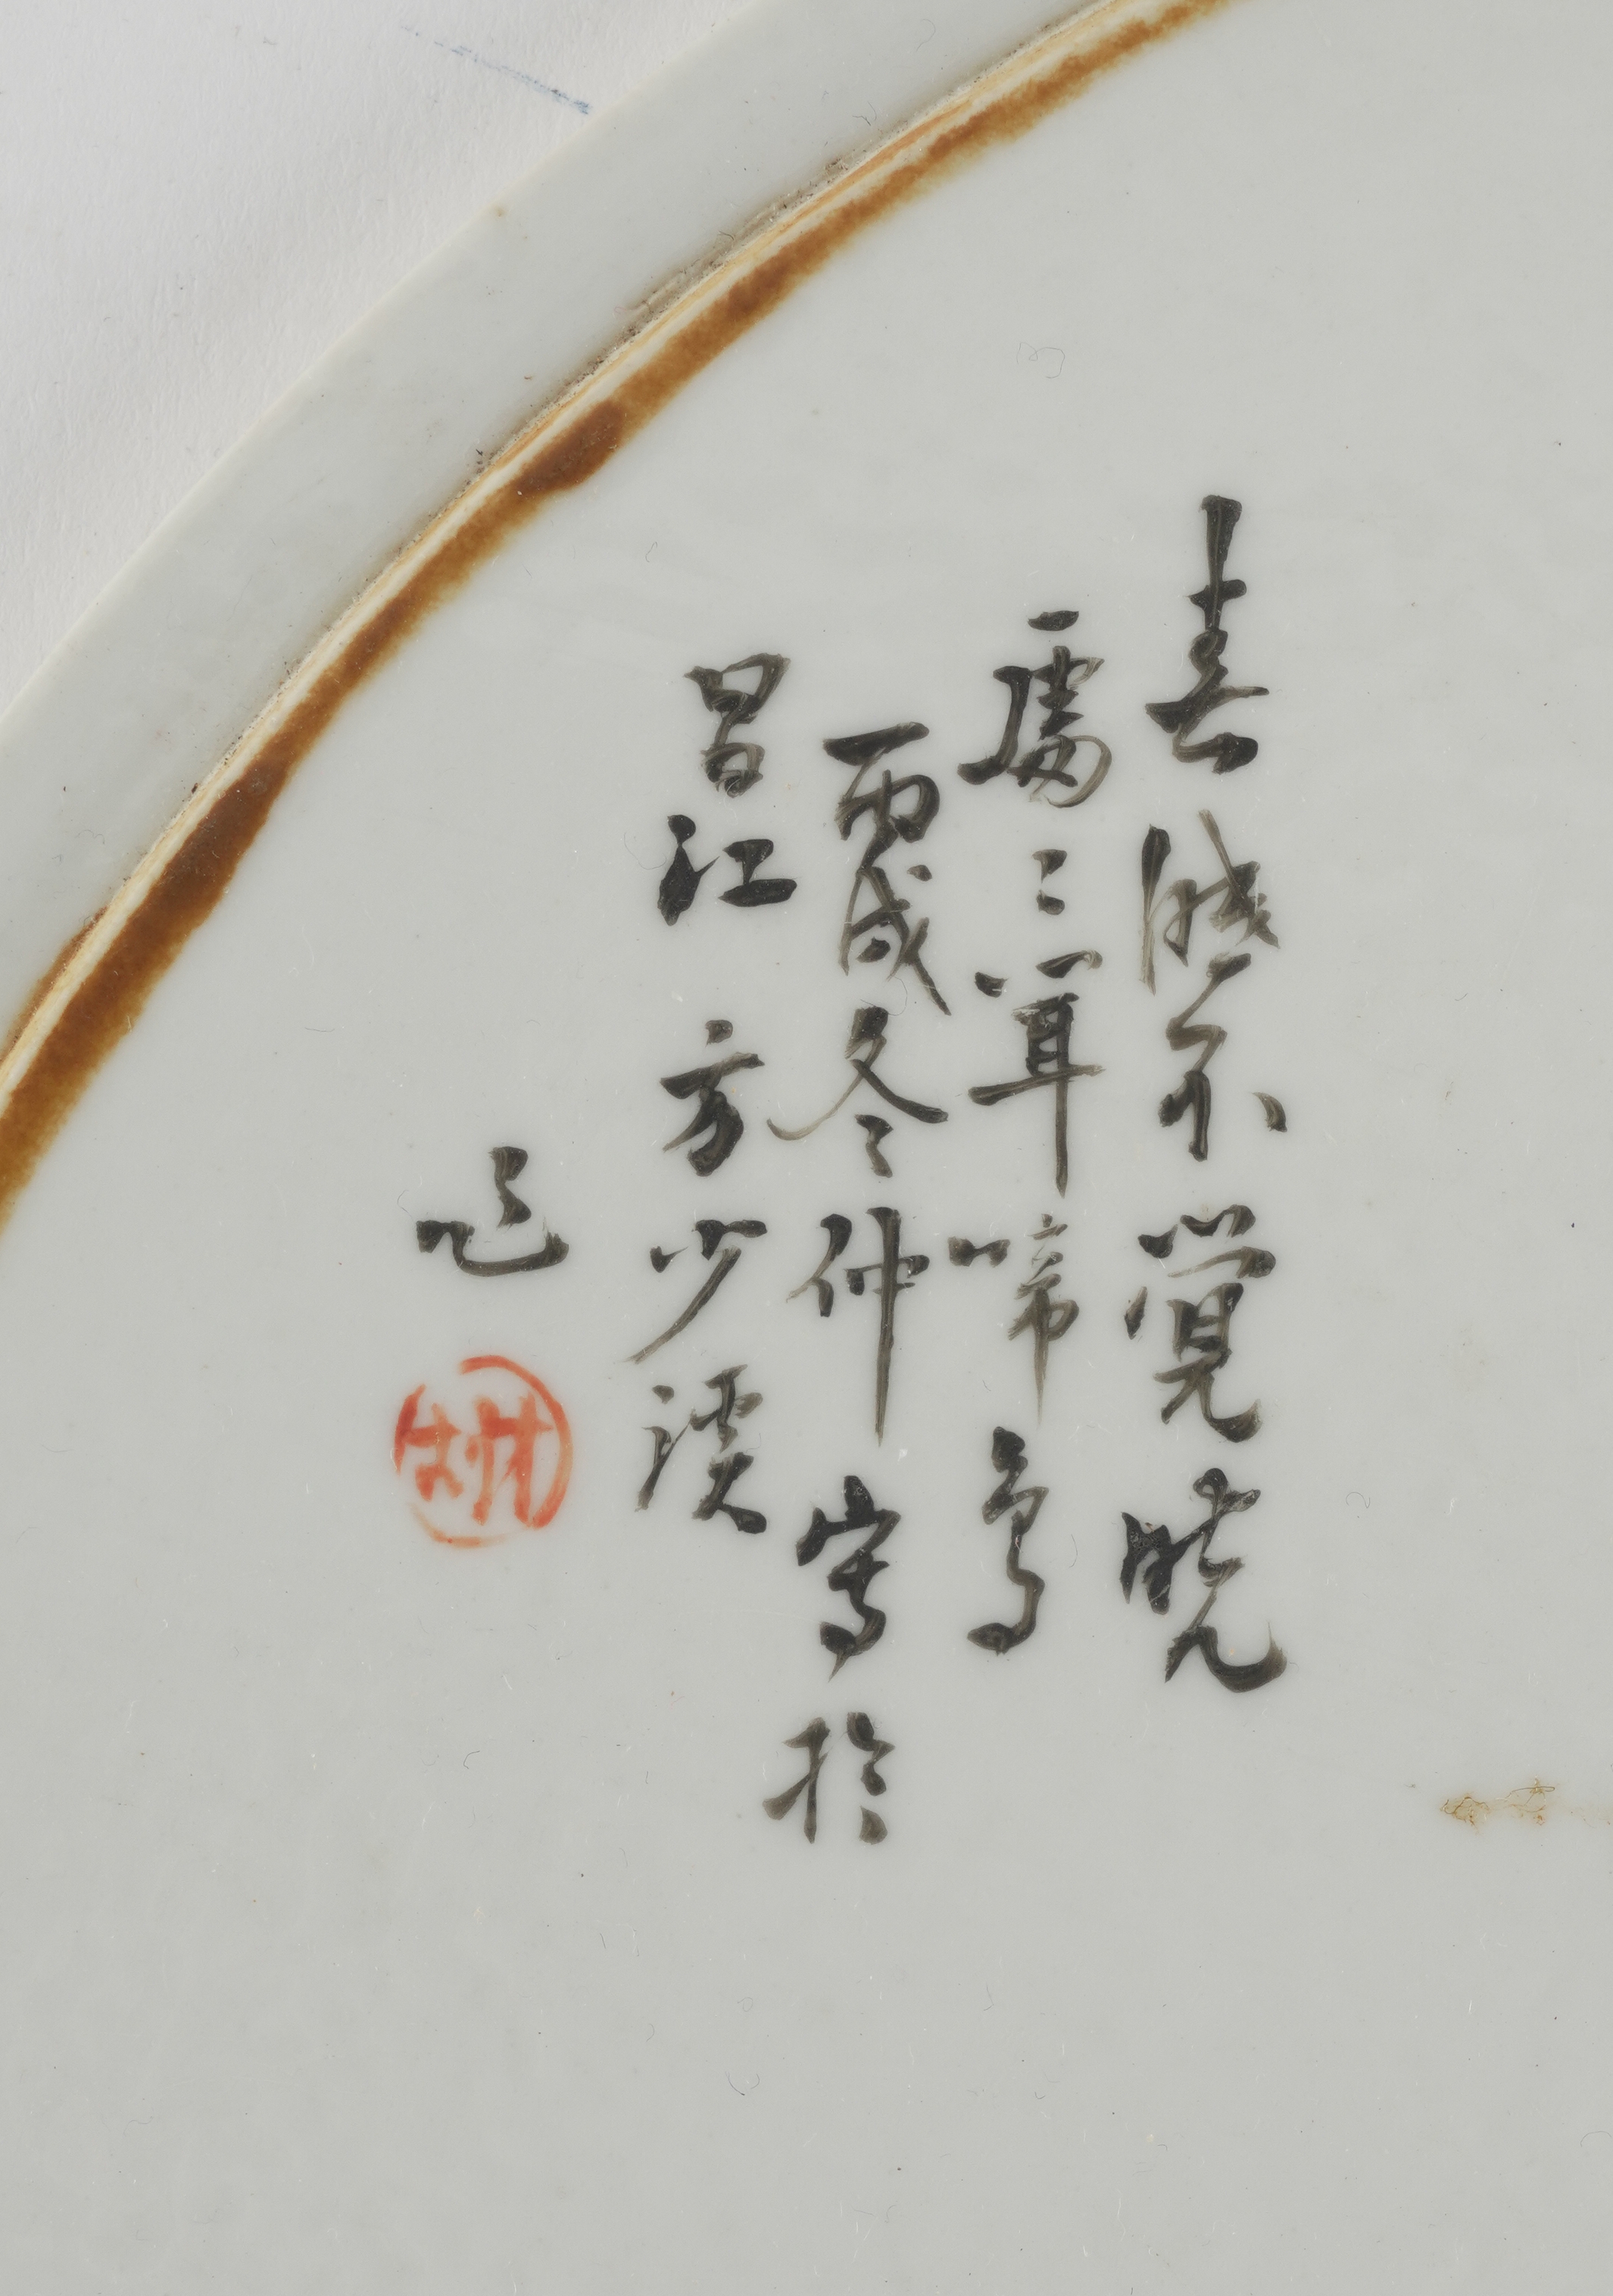 春眠不覺曉
處〻聞啼鳥
丙戌冬仲寫於
昌江方少溪